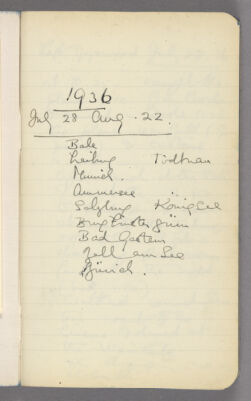 1936
July 28 Aug. 22.
Bale
Freiburg Todtnau
Munich.
Ammersee
Salzburg Königsee
Bad Gastein
Zell am See
Zürich.